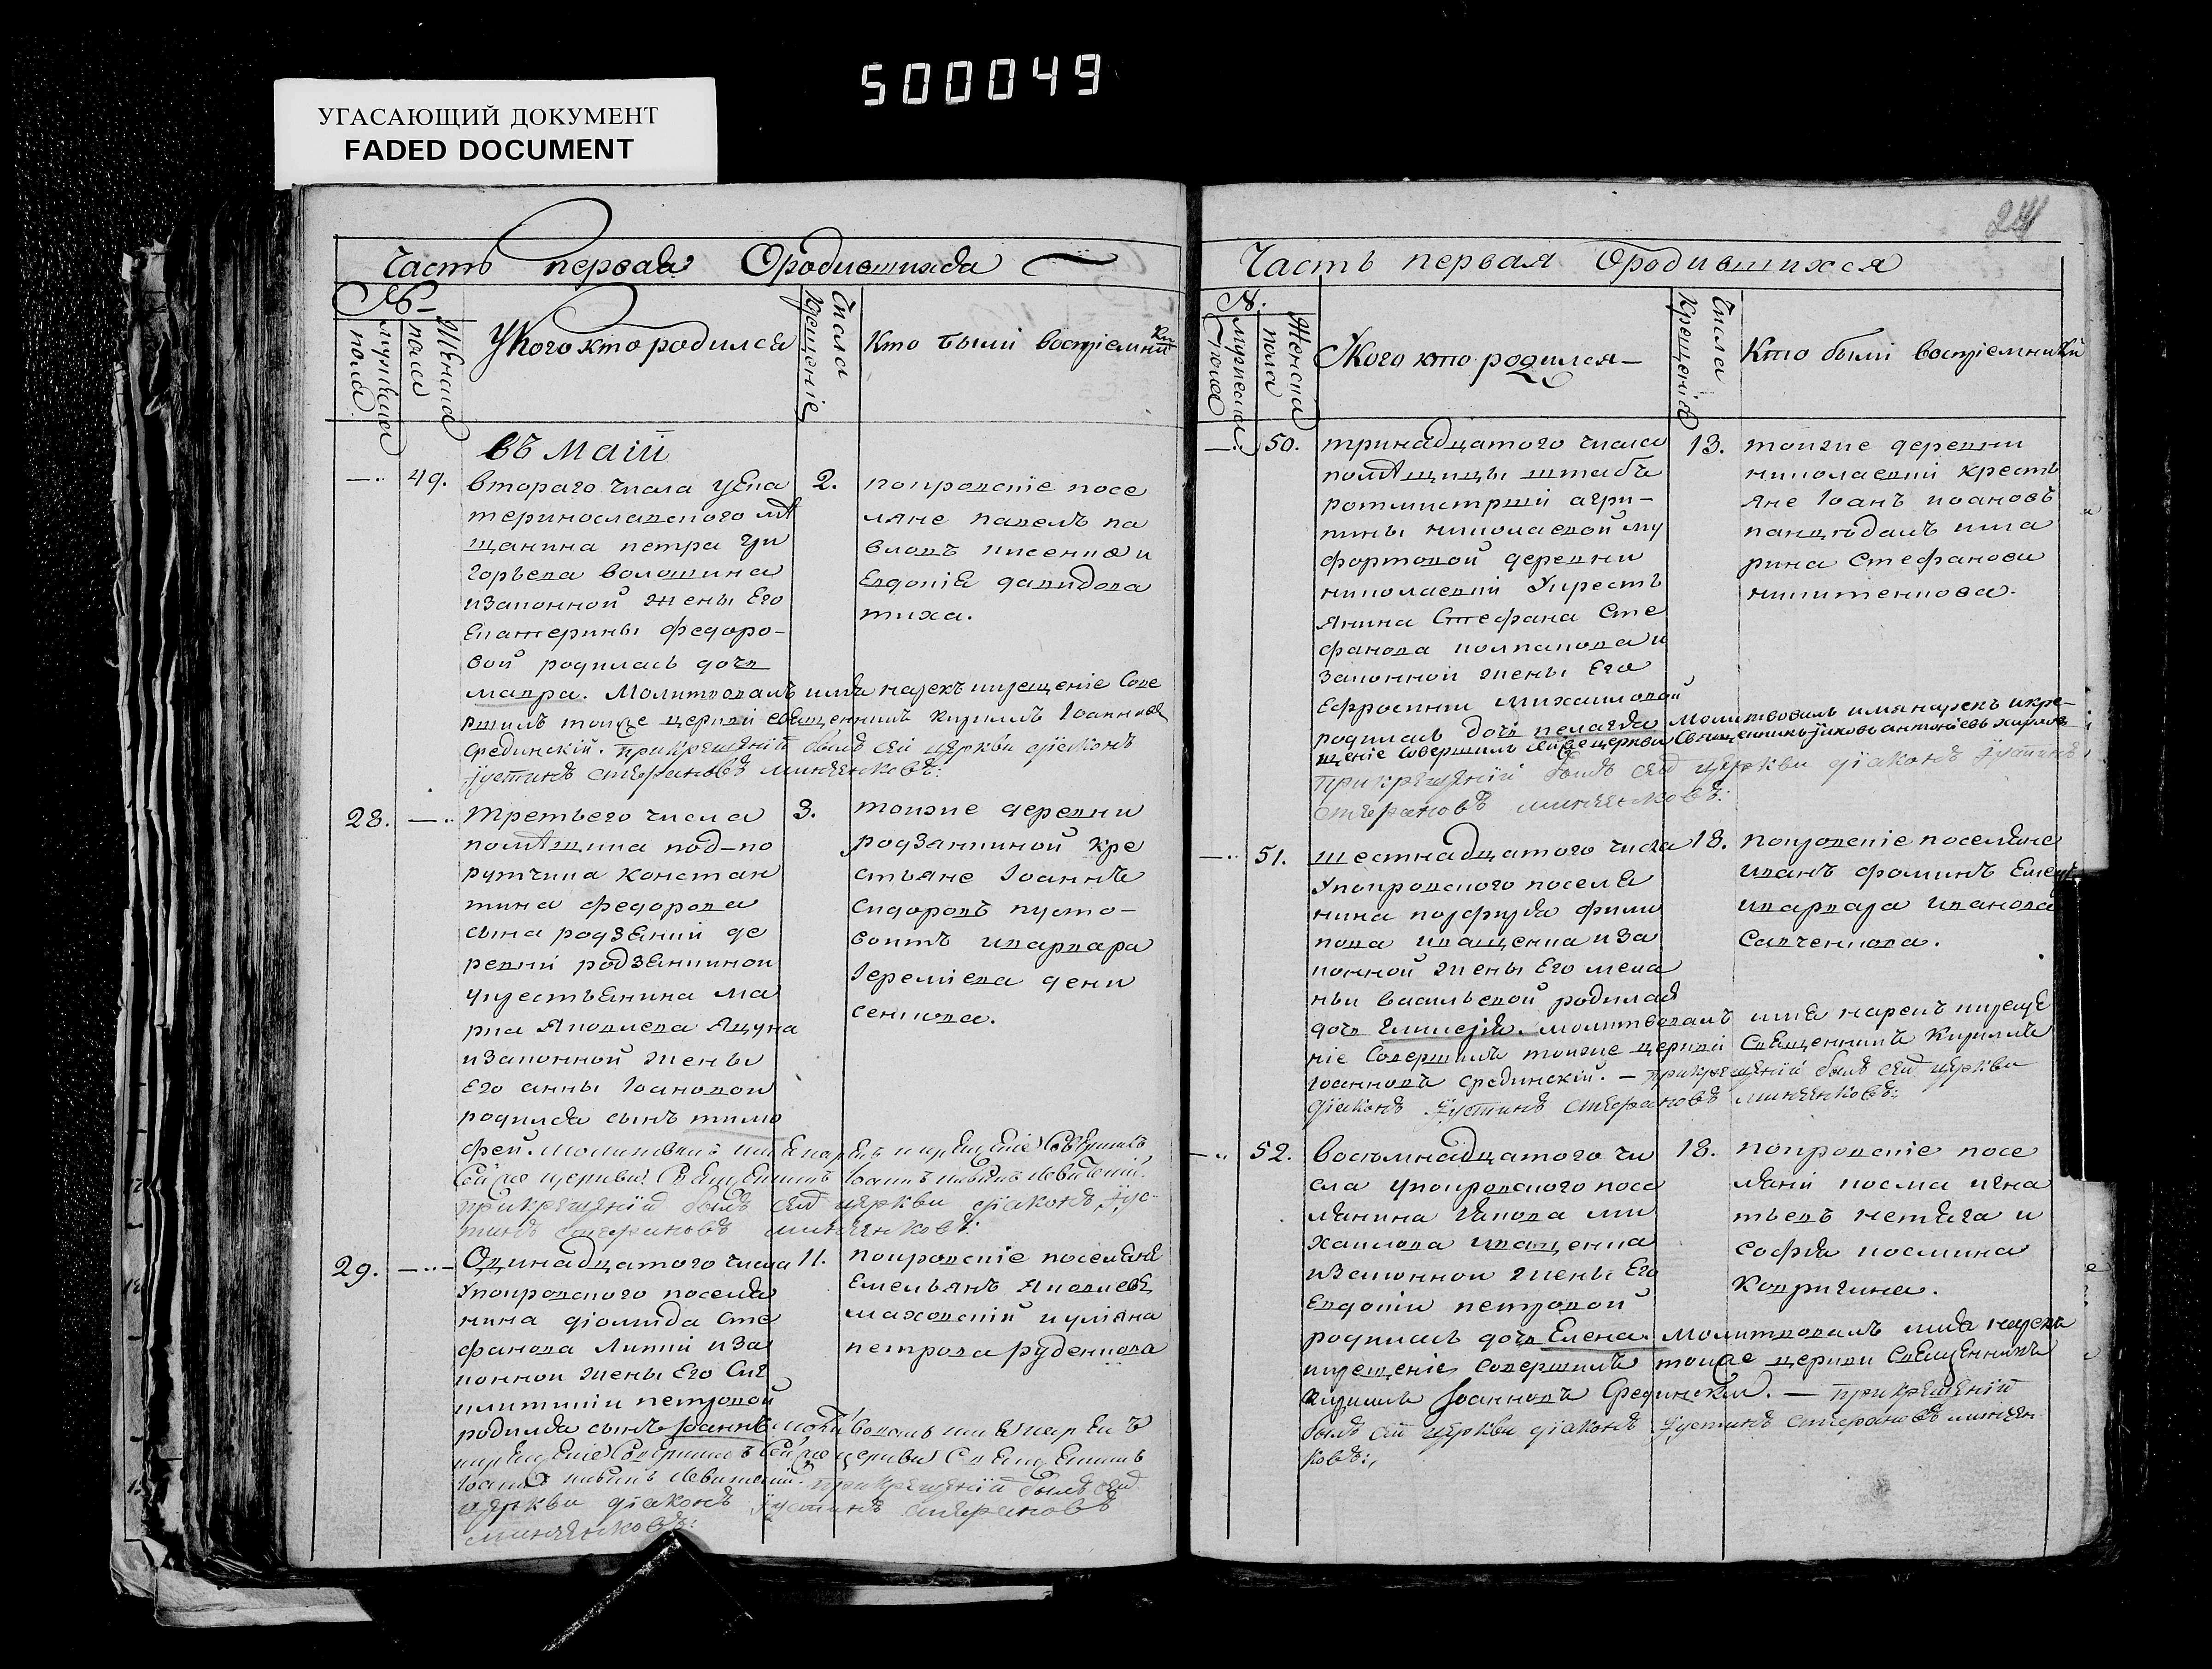 500049
УГАСАЮЩИЙ ДОКУМЕНТ
FADED DOCUMENT
Часть первая Ородившихся
№
мужеска пола
Женска пола
У Кого кто родился
Числа Крещение
Кто были восприемники
въ маіи
49.
втораго числа у Ека
теринославского мѣ
щанина петра гри
горьева волошина
изаконной жены Его
Екатерины федоро-
вой родилась дочь
мавра. Молитвовалъ имя нарекъ икрещеніе Сове
ршилъ тоиже церкви священникъ кириллъ Іоанновъ
Срединскій. прикрещеніи былъ сей церкви діяконъ
іустинъ стефановъ миненковъ:
2.
покровскіе посе
ляне павелъ па
вловъ лисенко и
Евдокія давидова
тиха.
28.
третьего числа
помѣщика под-по
рутчика констан
тина федорова
сына родзянки де
ревни родзянкинои
укрестьянина ма
рка Яковлева Яцуна
изаконной жены
Его анны Іоановои
родился сынъ тимо
фей. молитвовалъ имя нарекъ и крещеніе Совершилъ
Сейже церкви Священникъ Іоаннъ Левитскій.
прикрещеніи былъ сей церкви діяконъ іус-
тинъ стефановъ миненковъ:
3.
тоиже деревни
родзянкиной кре
стьяне Іоаннъ
Сидоровъ пусто-
воитъ иварвара
Іереміева дени
сенкова.
29.
Одинадцатого числа
упокровского поселя
нина діомида Сте
фанова Липки иза
конной жены Его Сик
родился сынъ Іоаннъ молитвовалъ имя нарекъ
икрещеніе Совершилъ Сейже церкви Священникъ
Іоаннъ Левитскій. прикрещеніи былъ сей
церкви діяконъ іустинъ стефановъ
миненковъ:
11.
покровскіе поселяне
Емельянъ Яковлевъ
маховскій иуліяна
петрова руденкова
24
Часть первая Ородившихся
№.
мужеска пола
Женска пола
У Кого кто родился
Числа Крещенія
Кто были восприемники
50.
тринадцатого числа
помѣщицы штабъ
ротмистрши агри-
пины николаевой му
фортовой деревни
николаевки Укресть
янина Стефана Сте
фанова колпакова и
законной жены Его
Ефросинии михаиловой
родилась дочь пелагея молитвовалъ имя нарекъ икре-
щеніе совершилъ сейже церкви Священникъ Яковъ антоніевъ
прикрещеніи былъ сей церкви діяконъ іустинъ
стефановъ миненковъ:
13.
тоиже деревни
николаевки кресть
яне Іоанъ иоановъ
има
рина Стефанова
никитенкова.
51.
шестнадцатого числа
Упокровского поселя
нина порфирія фили
пова иващенка иза
конной жены Его мела
ньи васильевой родилась
дочь гликерія. молитвовалъ имя нарекъ икреще
ніе Совершилъ тоиже церкви Священникъ Кириллъ
Іоанновъ срединскій. — прикрещеніи былъ сей церкви
діяконъ іустинъ стефановъ миненковъ:
18.
покровскіе поселяне
иванъ фоминъ
иварвара иванова
Савченкова.
52.
восемнадцатого чи
сла упокровского посе
лянина Іакова ми
хаилова иващенка
изаконнои жены Его
Евдокіи петровой
родилась дочь Елена. молитвовалъ имя нарекъ
икрещеніе совершилъ тоиже церкви Священникъ
Кириллъ Іоанновъ Срединскій. — прикрещеніи
былъ сей церкви діяконъ іустинъ стефановъ минен
ковъ:
18.
покровскіе посе
ляни косма игна
тьевъ нетяга и
софія космина
Ковригина.